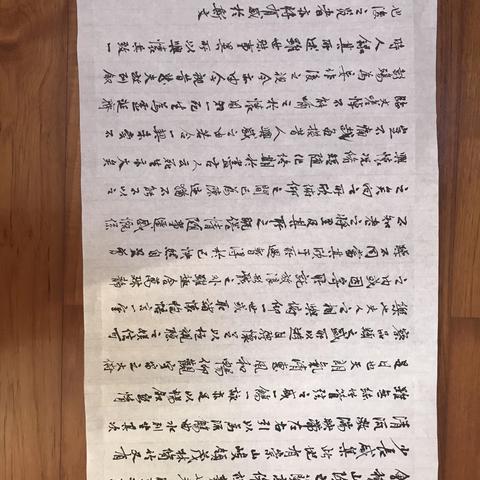 少長咸集此地有崇山峻領茂林修竹又有
清流激湍映帶左右引以為流觴曲水列坐其次
雖無絲竹管弦之盛一觴一詠亦足以暢敘幽情
是日也天朗氣清惠風和暢仰觀宇宙之大俯
察品類之盛所以遊目騁懷足以極視聽之娛信可
樂也夫人之相與俯仰一世或取諸懷抱悟言一室
之內或因寄所託放浪形骸之外雖趣舍萬殊靜
躁不同當其欣於所遇暫得於己快然自足不
知老之將至及其所之既惓情隨事遷感慨係
之矣向之所欣俛仰之間已為陳迹猶不能不以之
興懷況脩短隨化終期於盡古人云死生亦大矣
豈不痛哉每攬昔人興感之由若合一契未嘗不
臨文嗟悼不能喻之於懷固知一死生為虛誕齊
彭殤為妄作後之視今亦由今之視昔悲夫故列敘
時人錄其所述雖世殊事異所以興懷其致一
也後之覽者亦將有感於斯文